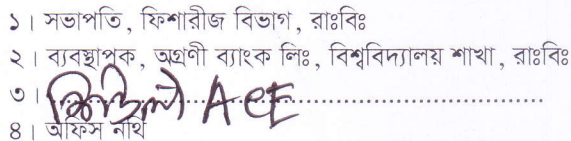 ১। সভাপতি, ফিশারীজ বিভাগ, রাঃবিঃ
২। ব্যবস্থাপক, অগ্রণী ব্যাংক লিঃ, বিশ্ববিদ্যালয় শাখা, রাঃবিঃ
৩। ACE
৪। অফিস নথি